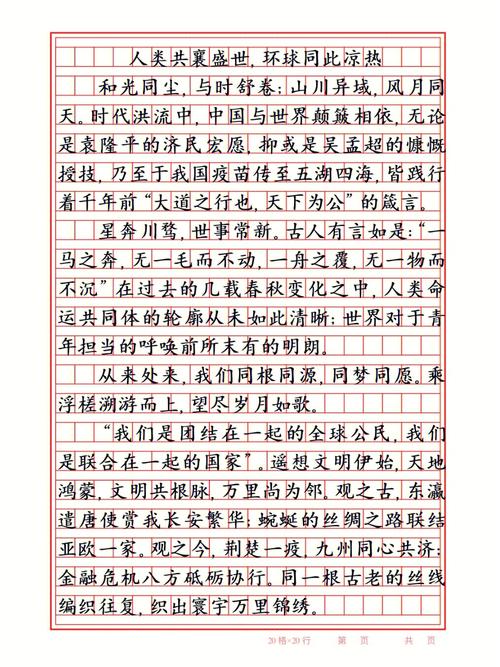 人类共襄盛世,环球同此凉热
和光同尘,与时舒卷;山川异域,风月同
天。时代洪流中,中国与世界颠簸相依,无论
是袁隆平的济民宏愿,抑或是吴孟超的慷慨
授技,乃至于我国疫苗传至五湖四海,皆践行
着千年前“大道之行也,天下为公”的箴言。
星奔川骛,世事常新。古人有言如是:“一
马之奔,无一毛而不动,一舟之覆,无一物而
不沉”在过去的几载春秋变化之中,人类命
运共同体的轮廓从未如此清晰;世界对于青
年担当的呼唤前所末有的明朗。
从来处来,我们同根同源,同梦同愿。乘
浮槎溯游而上,望尽岁月如歌。
“我们是团结在一起的全球公民,我们
是联合在一起的国家”。遥想文明伊始,天地
鸿蒙,文明共根脉,万里尚为邻。观之古,东瀛
遣唐使赏我长安繁华;蜿蜒的丝绸之路联结
亚欧一家。观之今,荆楚一疫,九州同心共济;
金融危机八方砥砺协行。同一根古老的丝线
编织往复,织出寰宇万里锦绣。
20格×20行 第 页 共 页